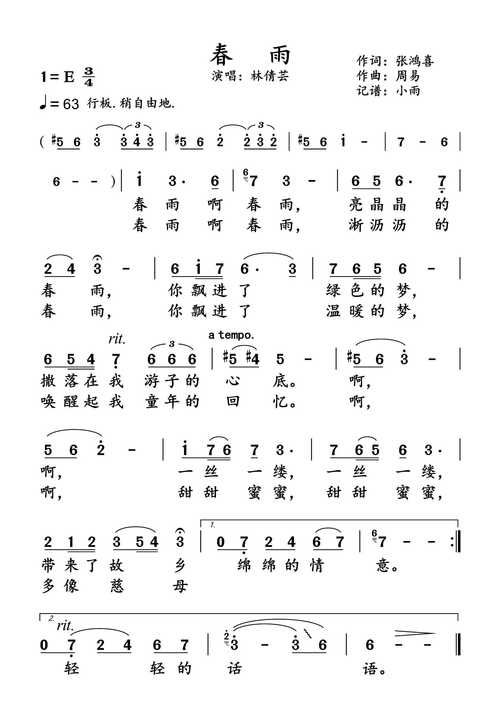 春 雨
作词：张鸿喜
1=E 3/4 演唱：林倩芸 作曲：周易
记谱：小雨
♩=63 行板.稍自由地.
( #5 6 3 3 4 3 | #5 6 2 2 3 2 | #5 6 1 - | 7 - 6 |
6 - - ) | 1 3· 6 | 6 7 3 - | 6 5 6· 7 |
春 雨 啊 春 雨， 亮 晶 晶 的
春 雨 啊 春 雨， 淅 沥 沥 的
2 4 3 - | 6 1 7 6· 3 | 7 6 5 6 - |
春 雨， 你 飘 进 了 绿 色 的 梦，
春 雨， 你 飘 进 了 温 暖 的 梦，
rit. a tempo.
6 5 4 7 6 6 6 | #5 #4 5 - | #5 6 3 - |
撒 落 在 我 游 子 的 心 底。 啊，
唤 醒 起 我 童 年 的 回 忆。 啊，
5 6 2 - | 1 7 6 7 3· | 7 6 5 6 3· |
啊， 一 丝 一 缕， 一 丝 一 缕，
啊， 甜 甜 蜜 蜜， 甜 甜 蜜 蜜，
1.
2 1 2 3 5 4 3 | 0 7 2 4 6 7 | 6 7 - - :||
带 来 了 故 乡 绵 绵 的 情 意。
多 像 慈 母
2. rit.
0 7 2 4 6 | 2 3 - 3 6 | 6 - - ||
轻 轻 的 话 语。